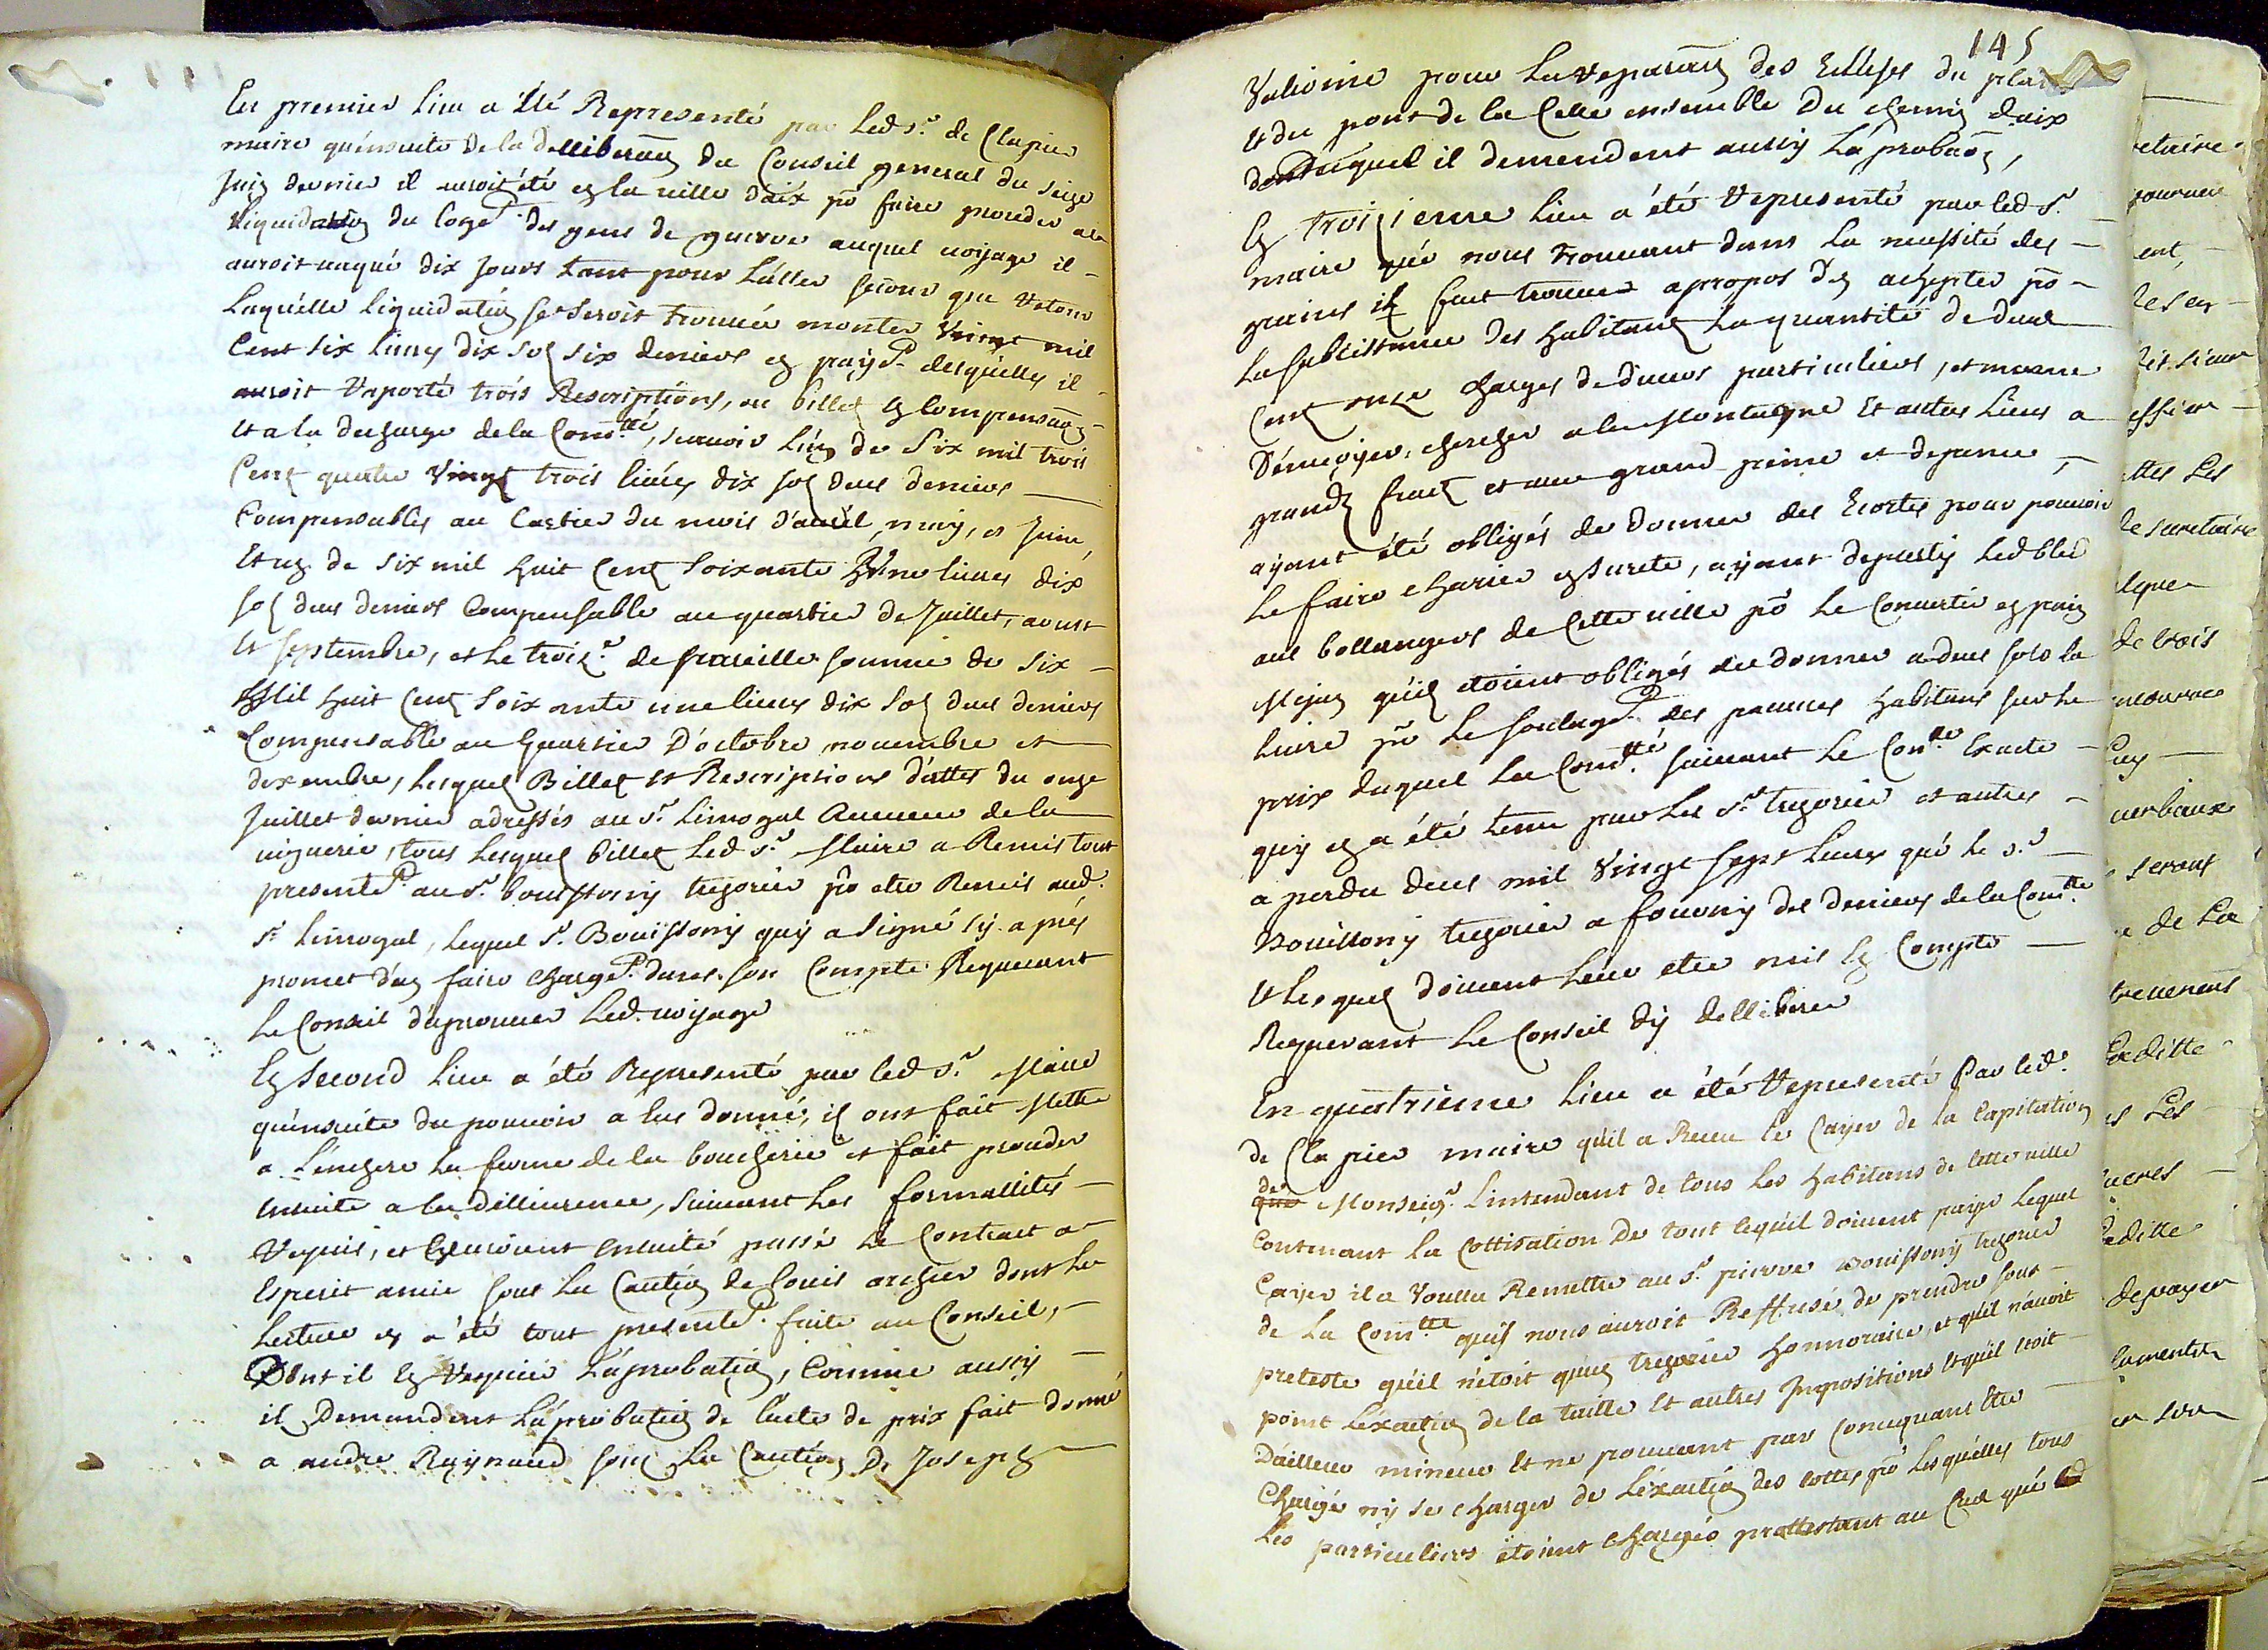 En premier lieu a été Representé par led sr. de Clapier
maire qu'ensuite de la delliberãon du Conseil general du seize
Juin dernier il auroit été en la ville d'aix po faire proceder a la
Liquidation du logemt. des gens de guerre auquel voyage il
auroit vaqué dix Jours tant pour L'aller sejour que Retour
Laquelle liquidation se seroit trouvée monter vingt mil
Cent six livres dix sols six deniers en payemt. desquelles il
auroit Raporté trois Rescriptions, ou billets en Compensaõn
et a la decharge de la Comtté, scavoir l'un de Six mil trois
Cent quatre vingt trois livres dix sols deux deniers
Compensables au Cartier du mois d'avril, may, et Juin,
Et un de six mil huit Cent Soixante Une livres dix
sols deux deniers Compensable au quartier de Juillet, aoust
et septembre, et le troize. de pareille somme de six
Mil huit Cent Soixante une livres dix sols deux deniers
Compensable au Quartier D'octobre novembre et
dexembre, lesquels Billets et Rescriptions d'attés du onze
Juillet dernier adressés au sr. Limogal Receveur de la
viguerie, tous lesquels billets led sr. Maire a Remis tout
presentemt. au sr. bouissony trezorier po etre Remis aud.
sr. Limogal, lequel sr. Bouissony quy a signé cy apres
promet d'en faire chargemt. dans son Compte Requerant
Le Conseil d'aprouver led. voyage
En second lieu a été Representé par led sr. Maire
qu'ensuite du pouvoir a lus donné, il ont fait Mettre
a L'enchere la ferme de la boucherie et fait proceder
ensuite a la dellivrance, suivant les formallités
Requis, et auroient ensuitte passé le Contract a
Esperit amic sous la Caution de Louis archier dont la
Lecture en a été tout presentemt. faite au Conseil,
Dont il en Requier L'aprobation, Comme aussy
il Demandent L'aprobation de l'acte de prix fait donné
a andre Raynaud sous La Caution De Joseph
145
Valioine pour La reparaõn des Ecluses du plan
et du pont de la Celle ensemble du chemin d'aix
duquel il demendent aussy L'aprobaõn,
En troizieme lieu a été Representé par led sr.
maire que nous trouvant dans la necessité des
grains il fait trouver apropos d'en achepter po
La subcistance des habitants La quantité de deux
Cent onze charges de divers particuliers, et mesme
D'envoyer chercher a la Montagne Et autres Lieux a
grands fraix et avec grand peine et depance,
ayant été obligés de donner des Escortes pour pouvoir
Le faire charier en surete, ayant departy led bled
aux bollangers de Cette ville po Le Convertir en pain
Mejan qu'il etoient obligés de donner a deux sols la
livre po Le soulagemt. des pauvres habitans sur le
prix duquel La Comtté. suivant Le Conlle. Exacte
quy en a été tenu par les sr. trezorier et autres
a perdu deux mil Vingt sept livres que le sr.
Bouissony trezorier a fourny des deniers de la Comtte.
et lesquels doivent leur etre mis En Compte
Requerant Le Conseil d'y delliberer
En quatrieme lieu a été Representé Par led.
de Clapier maire qu'il a Receu le Cayer de la Capitation
de
Monseigr. L'intendant de tous les habitans de Cette ville
Contenant la Cottisation De tout ce qu'il doivent payer lequel
Cayer il a Voullu Remettre au sr. pierre Bouissony trezorier
de La Comtte quy nous auroit Reffusé de prendre sous
preteste qu'il n'étoit qu'un trezorier honnoraire, et qu'il n'avoit
point L'exaction de la taille Et autres Impositions Et qu'il etoit
D'ailleur mineur Et ne pouvant par Consequant Etre
Chargé ny se charger de L'exaction des cottes po Lesquelles tous
Les particuliers étoient chargés prottestant au Cas que led